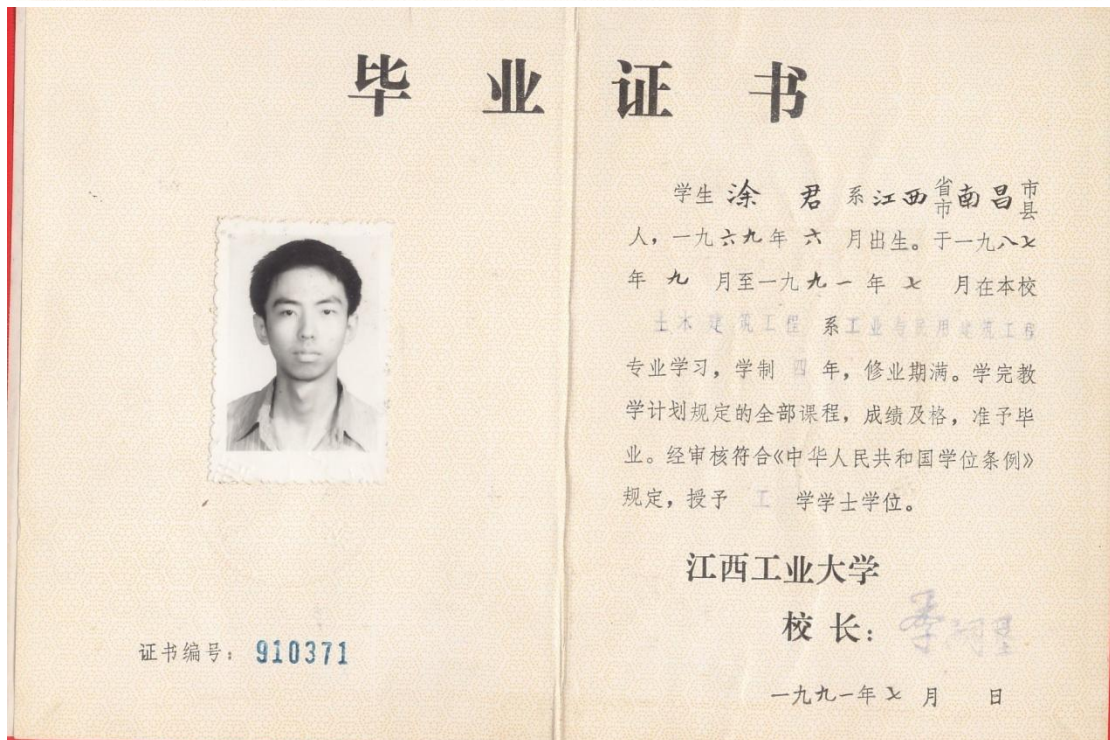 毕业证书
学生 涂 君 系江西省市南昌市县
人，一九六九年 六 月出生。于一九八七
年 九 月至一九九一年 七 月在本校
土木建筑工程 系工业与民用建筑工程
专业学习，学制 四 年，修业期满。学完教
学计划规定的全部课程，成绩及格，准予毕
业。经审核符合《中华人民共和国学位条例》
规定，授予 工 学学士学位。
江西工业大学
校长：
证书编号：910371
一九九一年七月 日